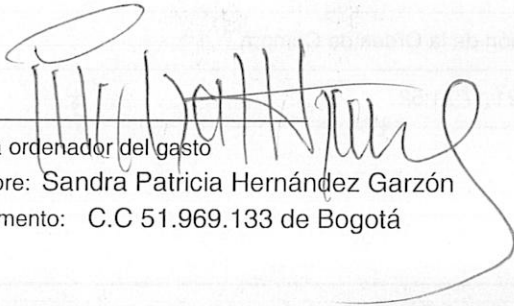 ordenador del gasto
bre: Sandra Patricia Hernández Garzón
mento: C.C 51.969.133 de Bogotá